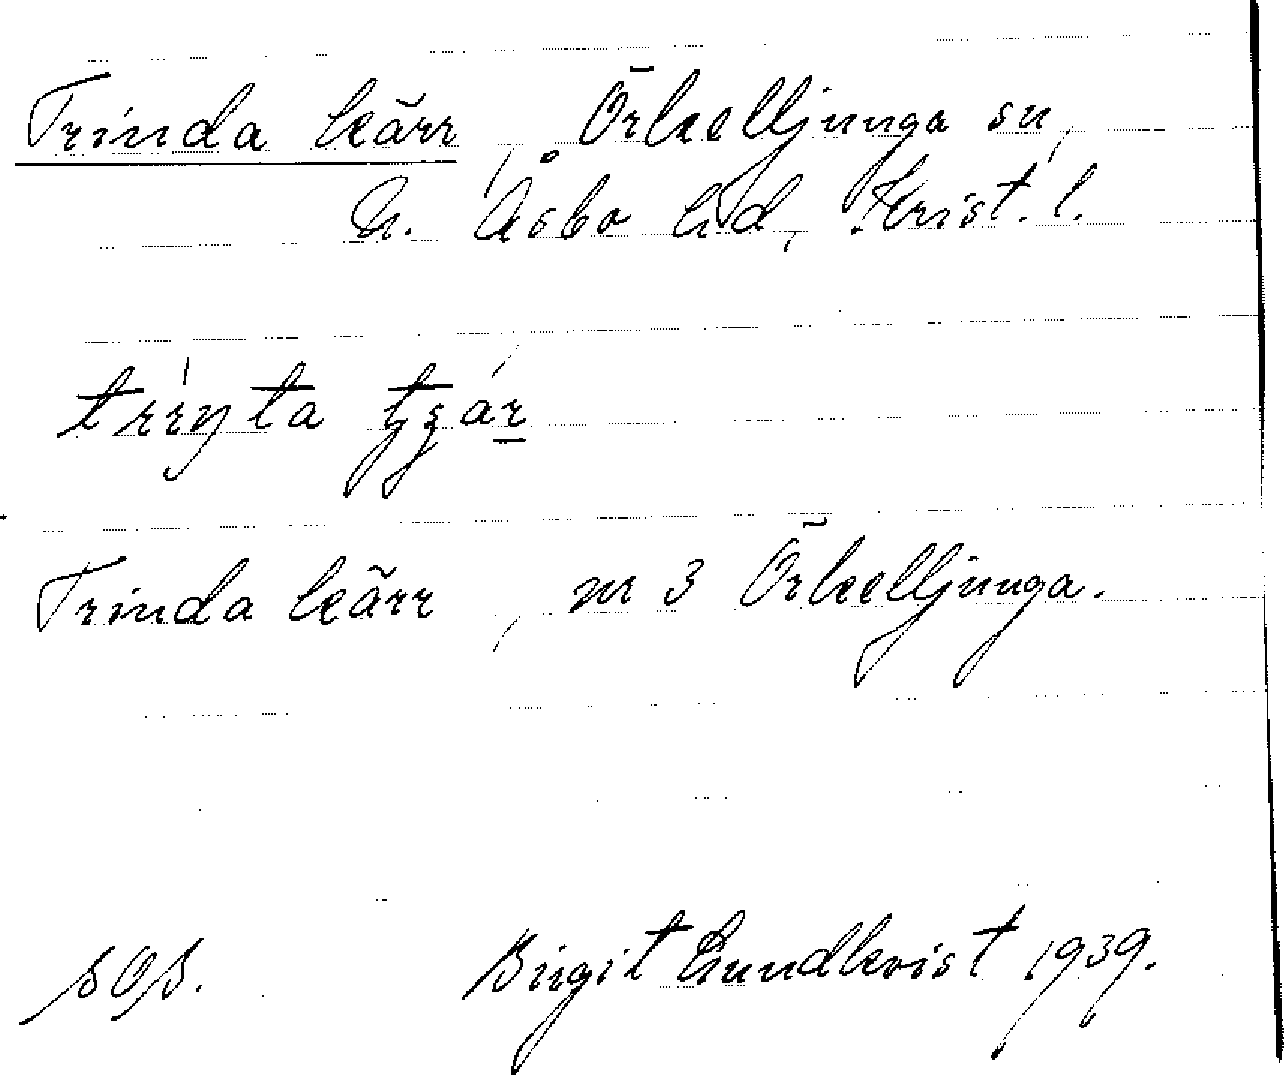 Trinda kärr, Örkelljunga sn,
N. Åsbo hd, Krist. l.
Trinda kärr, nr 3 Örkelljunga.
Birgit Lundkvist 1939.